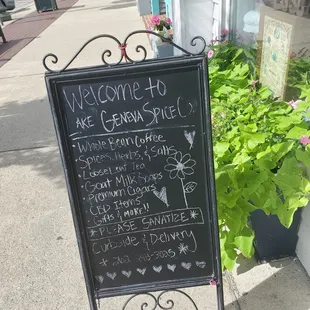 Welcome to
AKE GENEVA SPICE Co.
• Whole Bean Coffee
• Spices, Herbs, & Salts
• Loose Leaf Tea
• Goat Milk Soaps
• Premium Cigars
• CBD Items
• Gifts & more!!
*PLEASE SANITIZE*
Curbside & Delivery